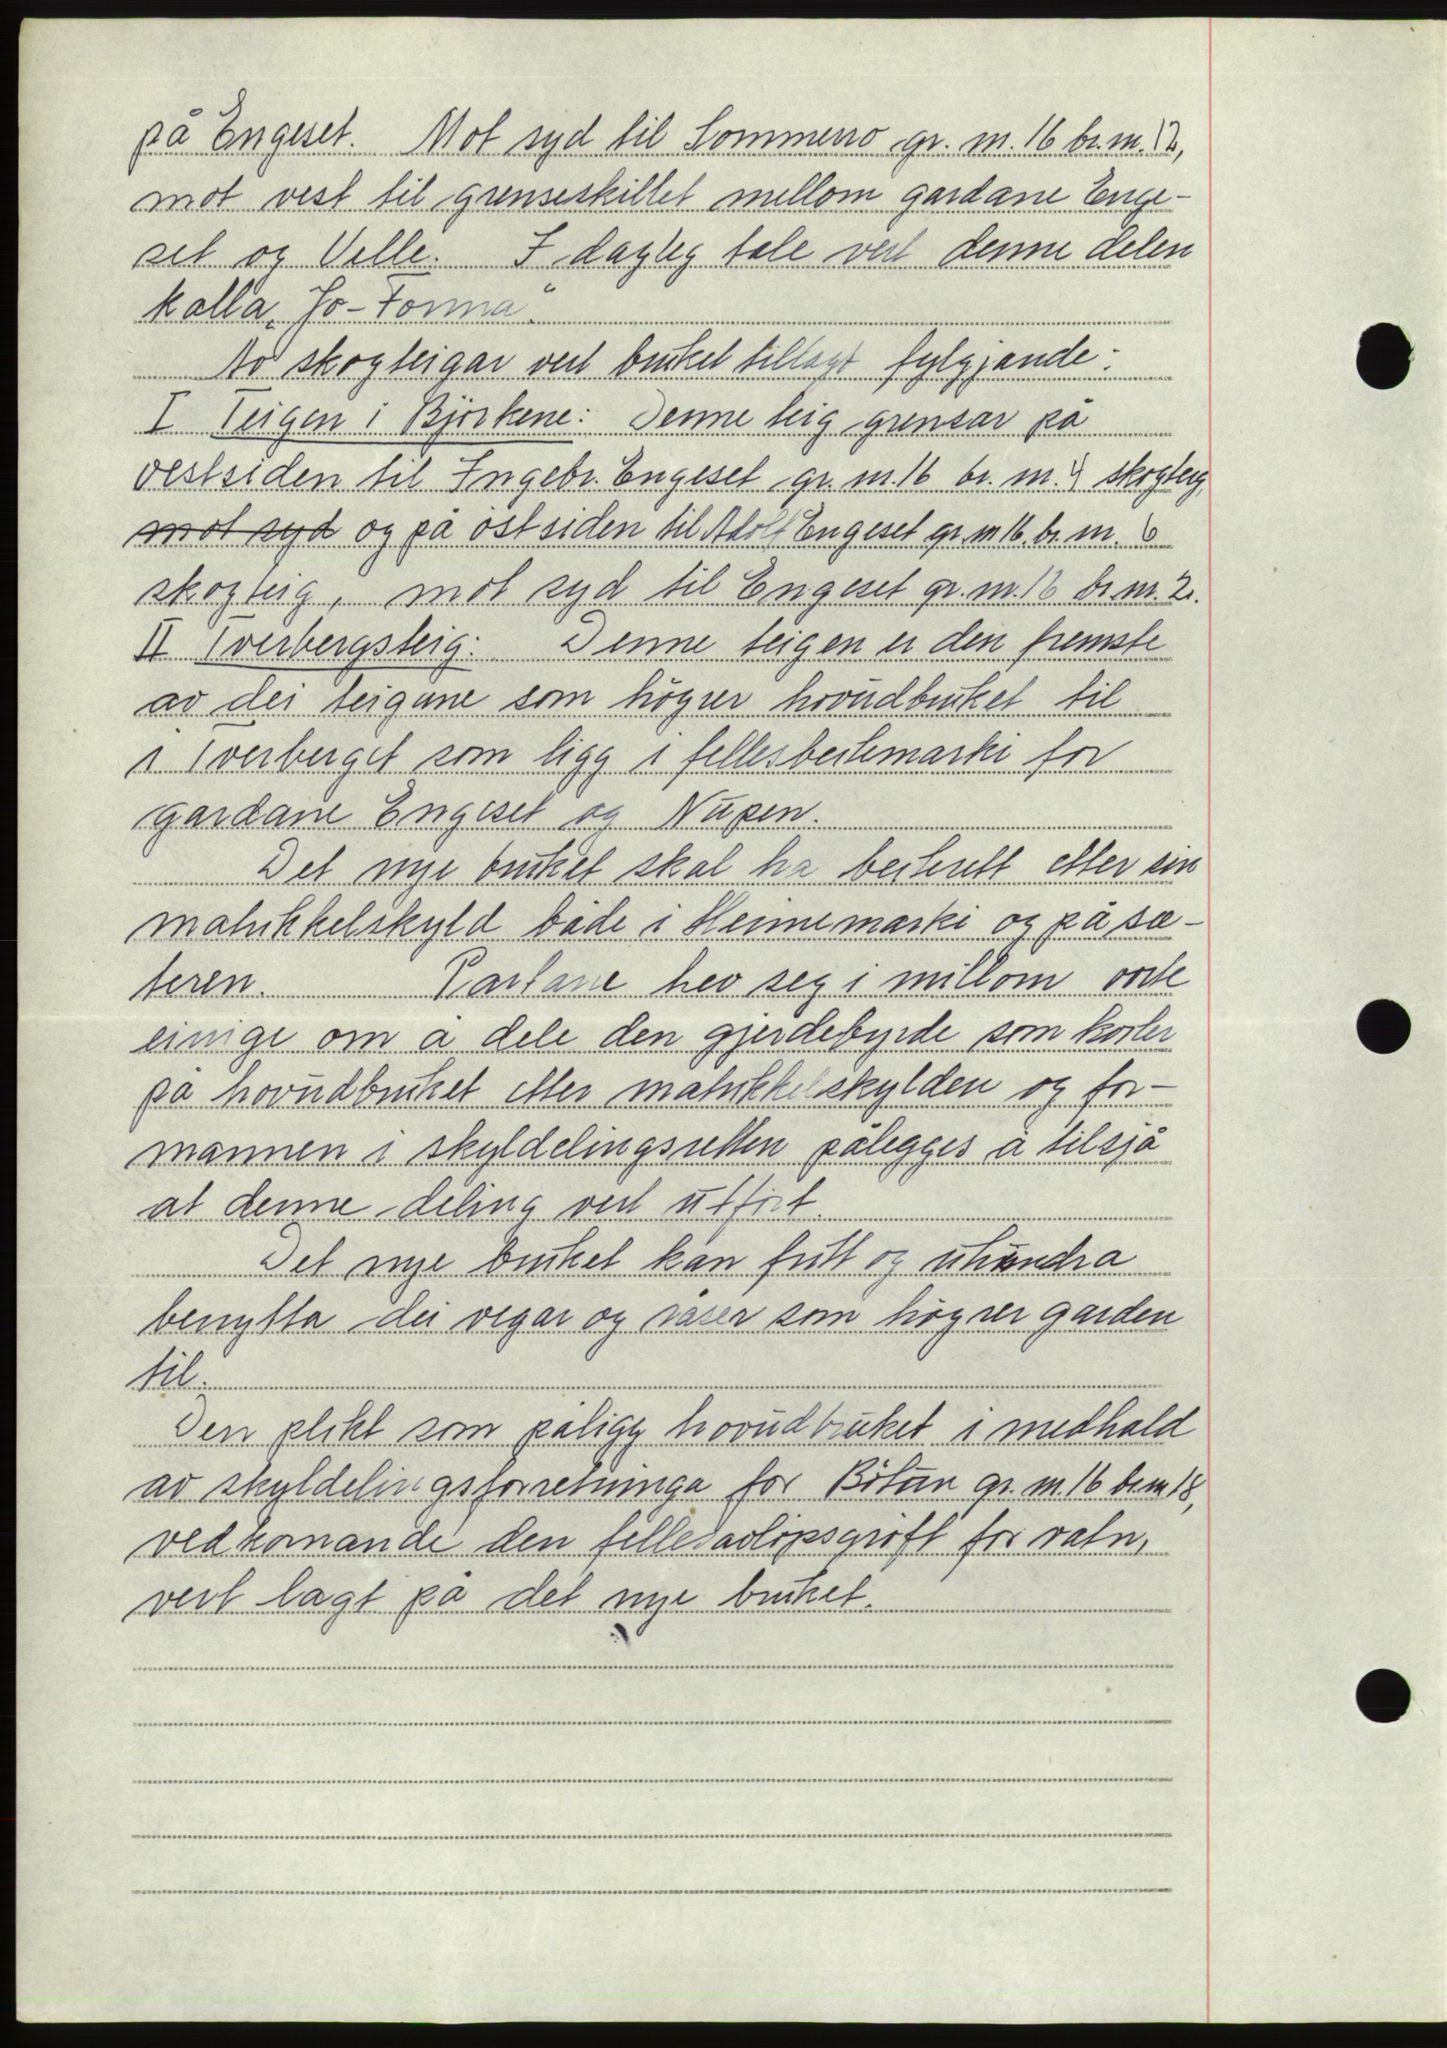 på Engeset. Mot syd til Sommerro gr. nr. 16 br. nr. 12,
mot vest til grenseskillet mellom gardane Enge-
set og Velle. I dagleg tale vert denne delen
kalla „Jo-Tonna"
Av skogteigar vert bruket tillagt fylgjande:
I Teigen i Björkene: Denne teig grensar på
vestsiden til Ingebr. Engeset gr. nr. 16 br. nr. 4 skogteig,
mot syd og på östsiden til Adolf Engeset gr. nr 16. br. nr. 6
skogteig, mot syd til Engeset gr. nr. 16 br. nr. 2.
II Tverbergsteig: Denne teigen er den fremste
av dei teigane som högrer hovudbruket til
i Tverberget som ligg i fellesbeitemarki for
gardane Engeset og Nupen.
Det nye bruket skal ha beiterett etter sin
matrikkelskyld både i Heimemarki og på sæ-
teren. Partane hev seg i millom vorte
einige om å dele den gjerdebyrde som kviler
på hovudbruket etter matrikkelskylden og for-
mannen i skyldelingsretten pålegges å tilsjå
at denne deling vert utfört.
Det nye bruket kan fritt og uhindra
benytta dei vegar og råser som högrer garden
til.
Den plikt som påligg hovudbruket i medhald
av skyldelingsforretninga for Bötun gr. nr. 16 br. nr 18,
vedkomande den fellesavlöpsgröft for vatn,
vert lagt på det nye bruket.